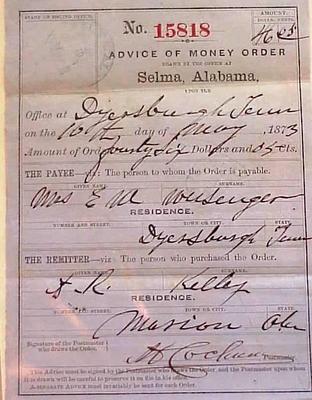 STAMP OF ISSUING OFFICE.
AMOUNT.
DOLLS. CENTS.
No. 15818
ADVICE OF MONEY ORDER
DRAWN BY THE OFFICE AT
Selma, Alabama,
UPON THE
Office at Dyersburgh Tenn
on the day of May, 1873
Amount of Order, Dollars and 05 cts.
THE PAYEE—viz: The person to whom the Order is payable.
GIVEN NAME. SURNAME.
Mrs E M
RESIDENCE.
NUMBER AND STREET. TOWN OR CITY. STATE
Dyersburgh Tenn
THE REMITTER—viz: The person who purchased the Order.
GIVEN NAME. SURNAME.
A R. Kelley
RESIDENCE.
TOWN OR CITY. STATE
Marion
Signature of the Postmaster who draws the Order.
Postmaster.
This Advice must be signed by the Postmaster who draws the Order, and the Postmaster upon whom
it is drawn will be careful to preserve it on file in his office.
A SEPARATE ADVICE must invariably be sent for each Order.